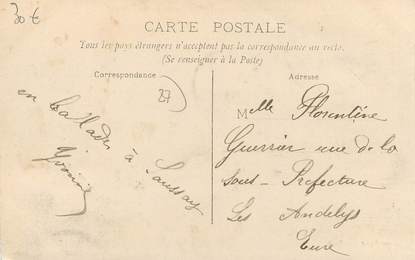 30 €
CARTE POSTALE
Tous les pays étrangers n'acceptent pas la correspondance au recto.
(Se renseigner à la Poste)
Correspondance
27
en ballade
à Saussay
Yvonne
Adresse
Melle Florentine
Guerrier rue de la
Sous-Préfecture
Les Andelys
Eure